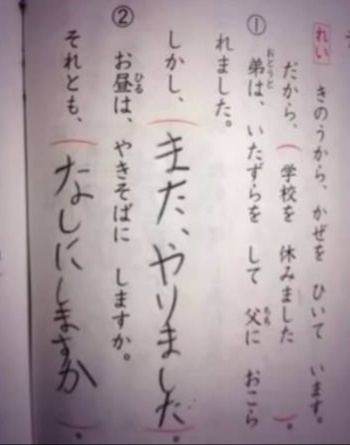 れい きのうから、かぜを ひいて います。
だから、(学校を 休みました)。
① 弟は、いたずらを して 父に おこら
れました。
しかし、(また、やりました)。
② お昼は、やきそばに しますか。
それとも、(なしにしますか)。